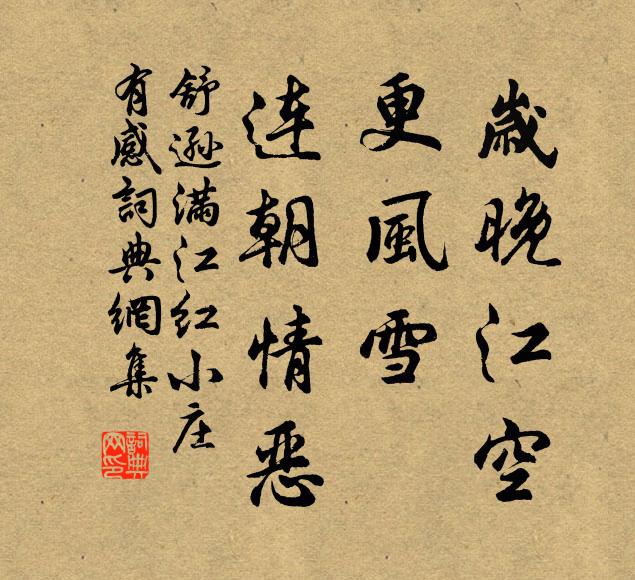 歲晚江空
更風雪
連朝情惡
舒遜滿江红小庄
有感詞典網集
詞典網印